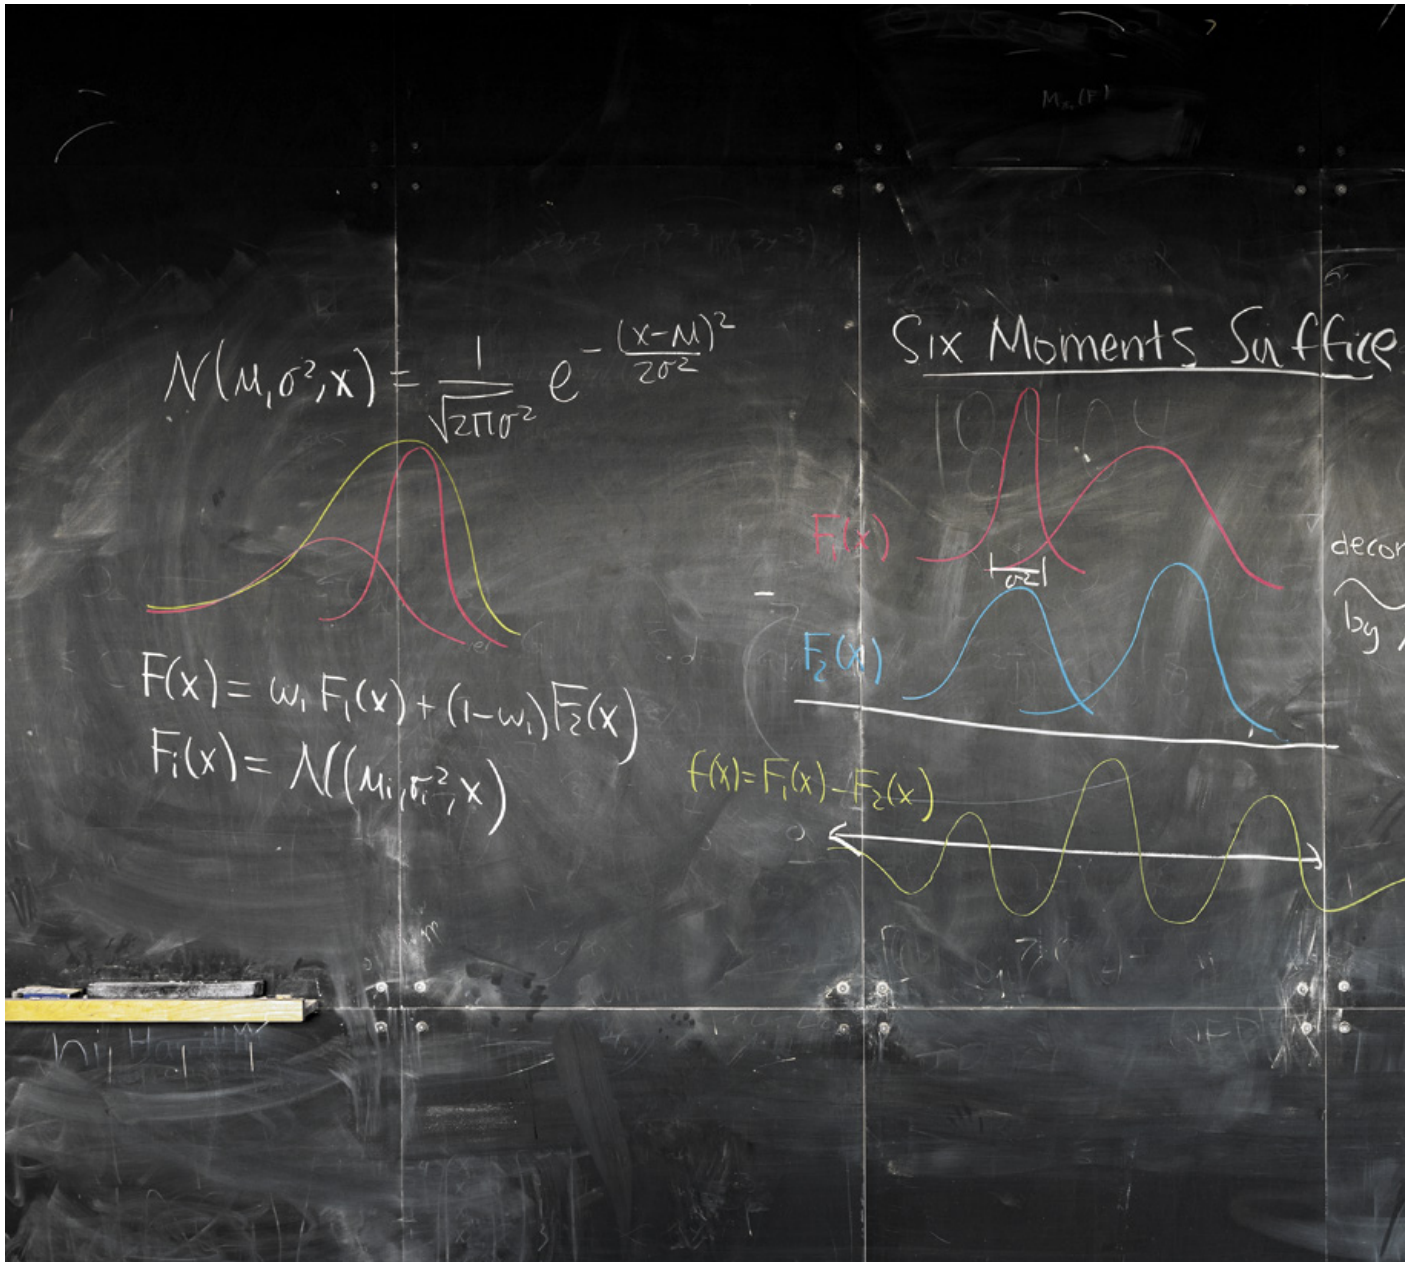 N(μ,σ²,x) = 1/√(2πσ²) e^(-(x-μ)²/(2σ²))
F(x) = ω₁F₁(x) + (1-ω₁)F₂(x)
Fᵢ(x) = N(μᵢ,σᵢ²,x)
Six Moments Suffice
F₁(x)
σ²
F₂(x)
f(x)=F₁(x)-F₂(x)
0
by